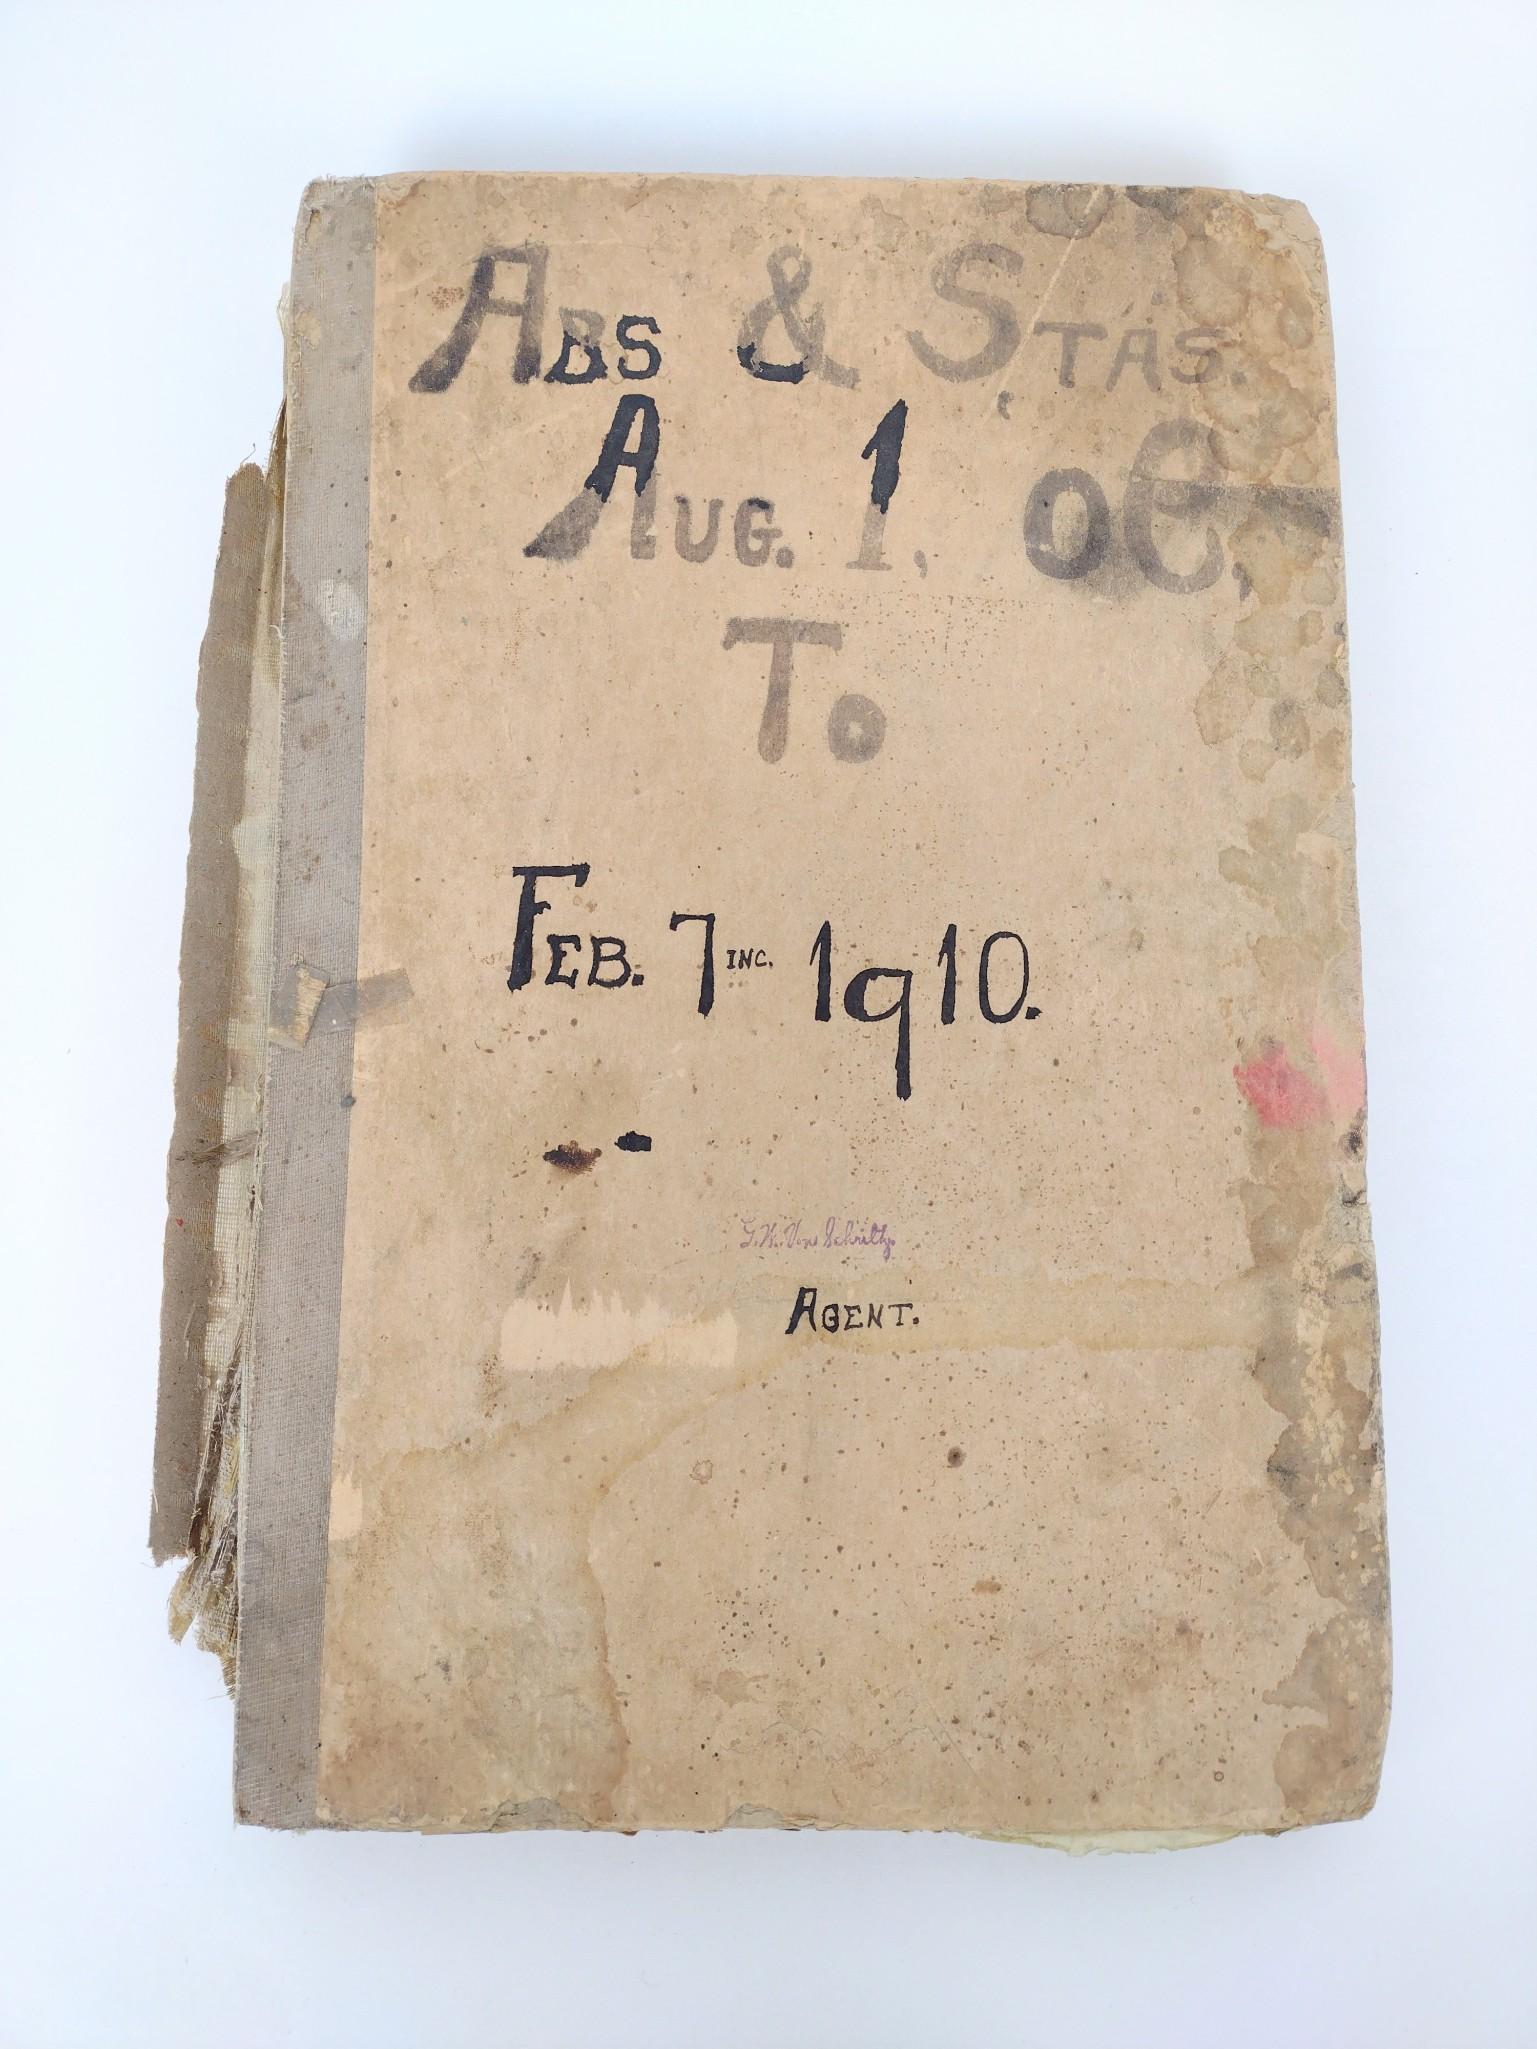 ABS & STAS.
AUG. 1,
TO
FEB. 7 INC. 1910.
G. W. Von Schriltz.
AGENT.